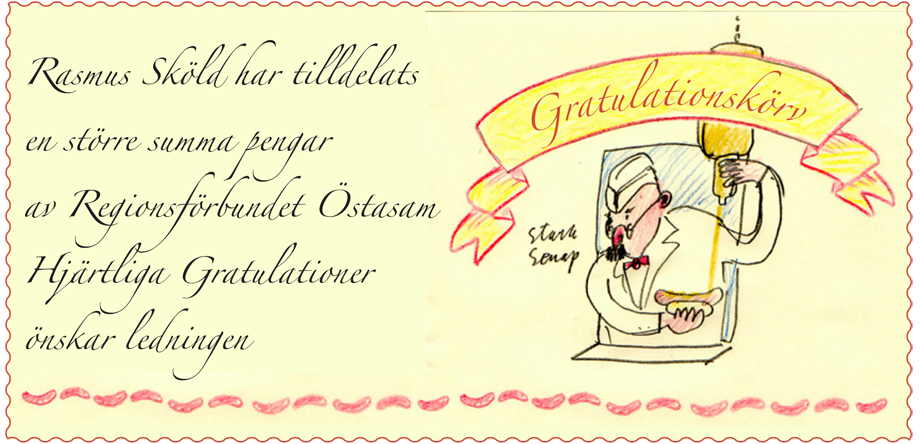 Rasmus Sköld har tilldelats
en större summa pengar
av Regionsförbundet Östasam
Hjärtliga Gratulationer
önskar ledningen
Gratulationskörv
stark
senap